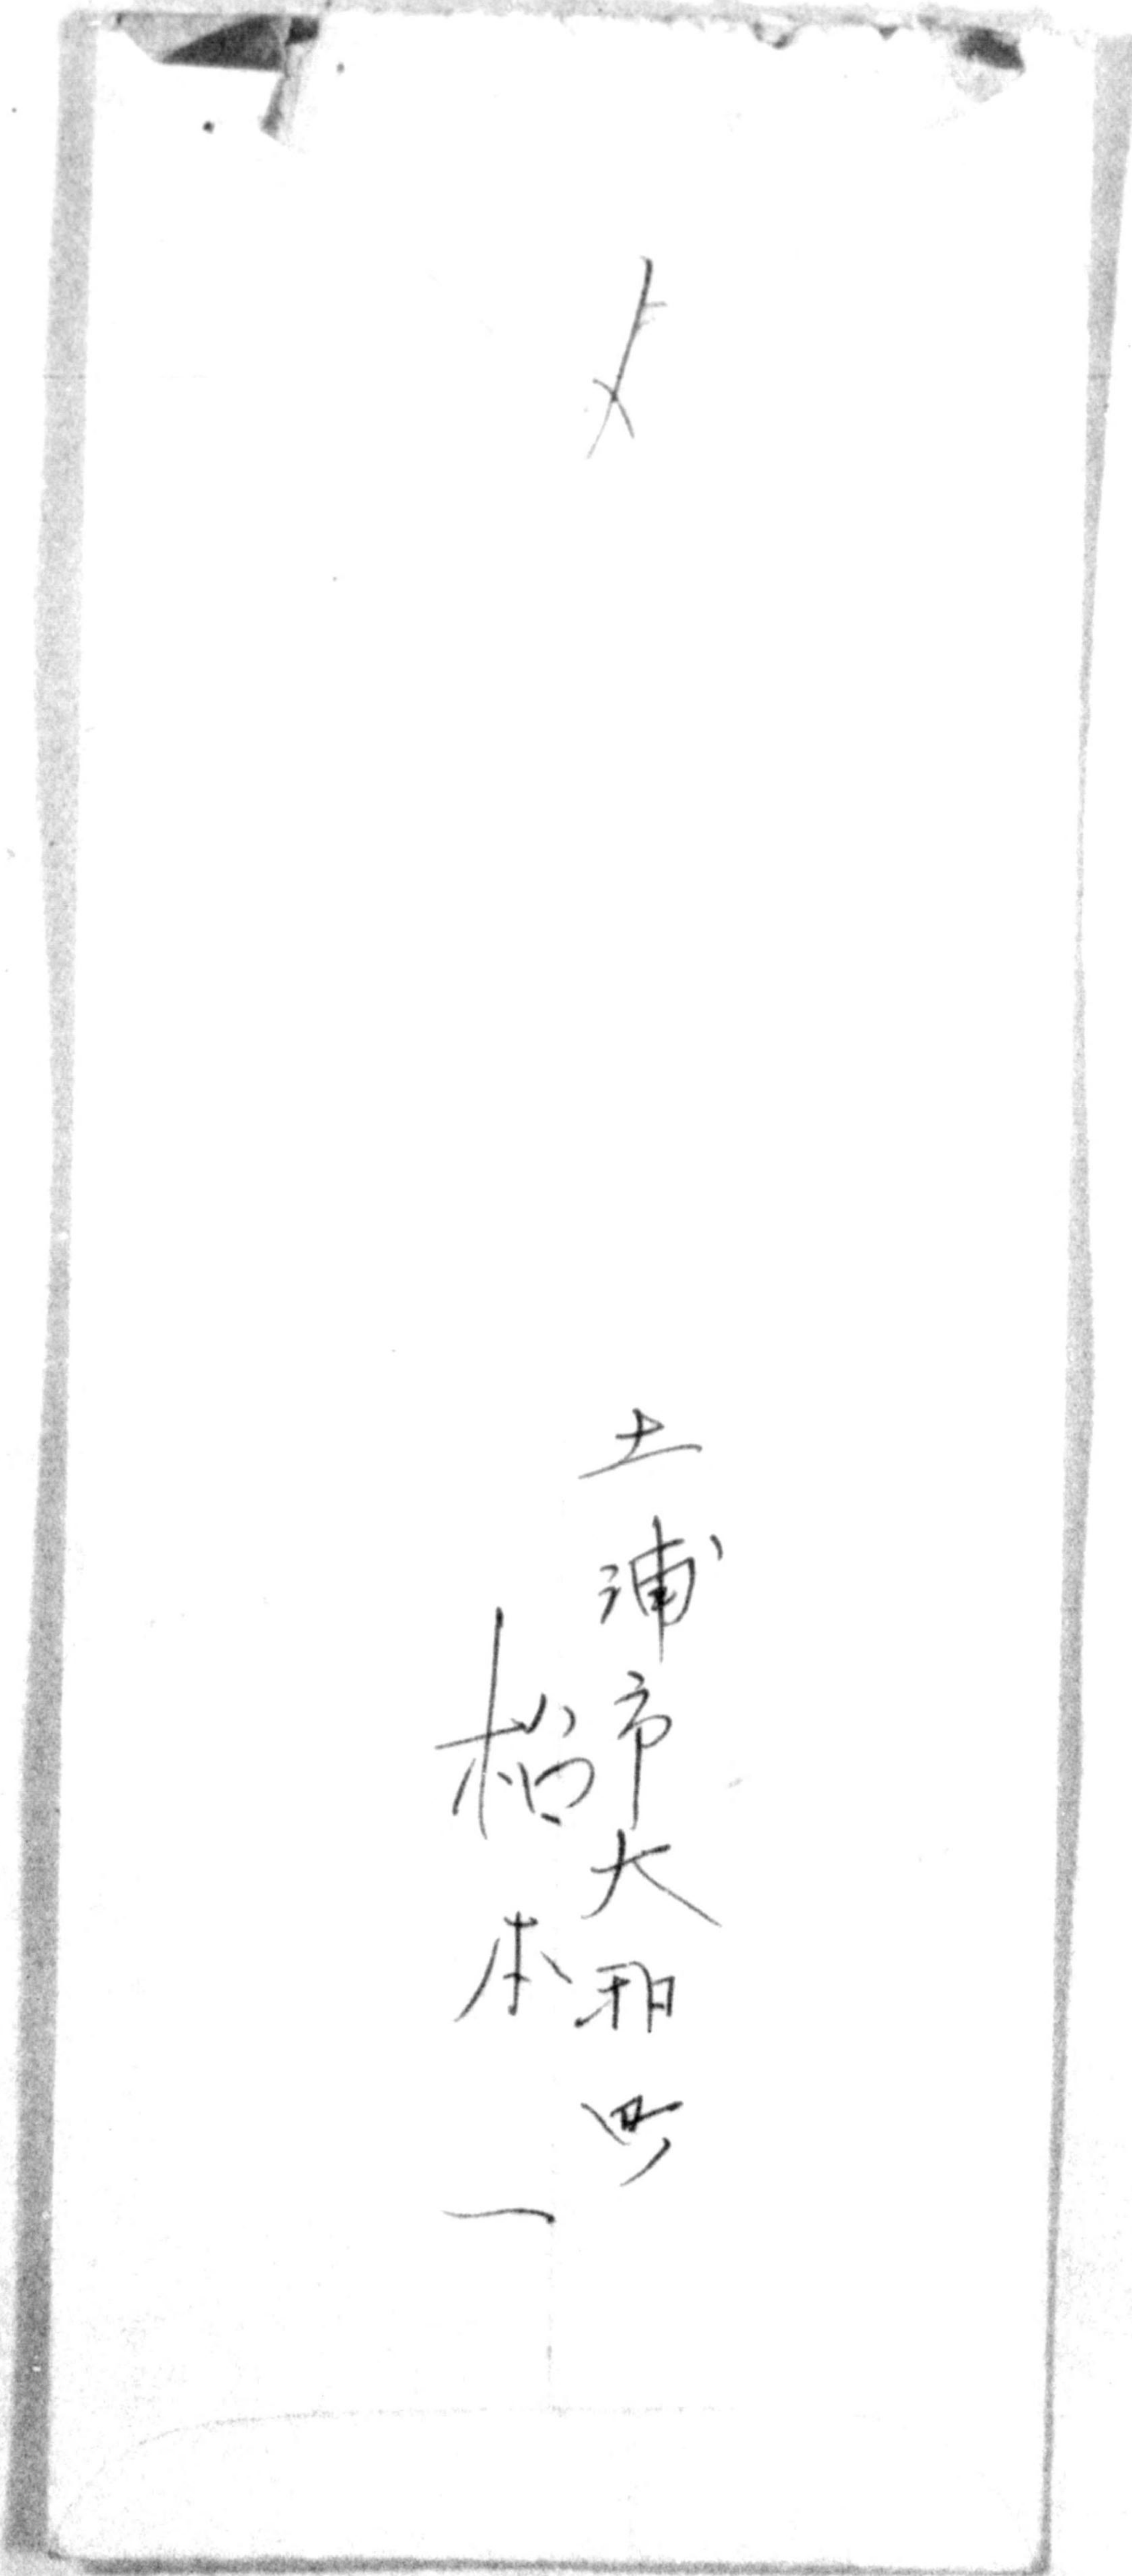 〆
土浦市大和町
柗本一